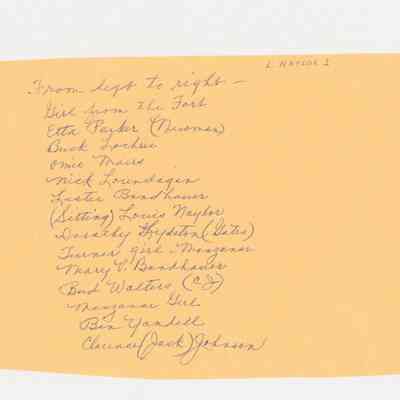 L NAYLOR 1
From left to right —
Girl from the Fort
Etta Parker (Newman)
Buck Lochrie
Omie Mairs
Nick Loundagin
Lester Bandhauer
(Sitting) Louis Naylor
Dorothy (Gates)
Turner girl - Manzanar
Mary V. Bandhauer
Bud Walters (C.J)
Manzanar Girl
Ben Yandell
Clarence (Jack) Johnson